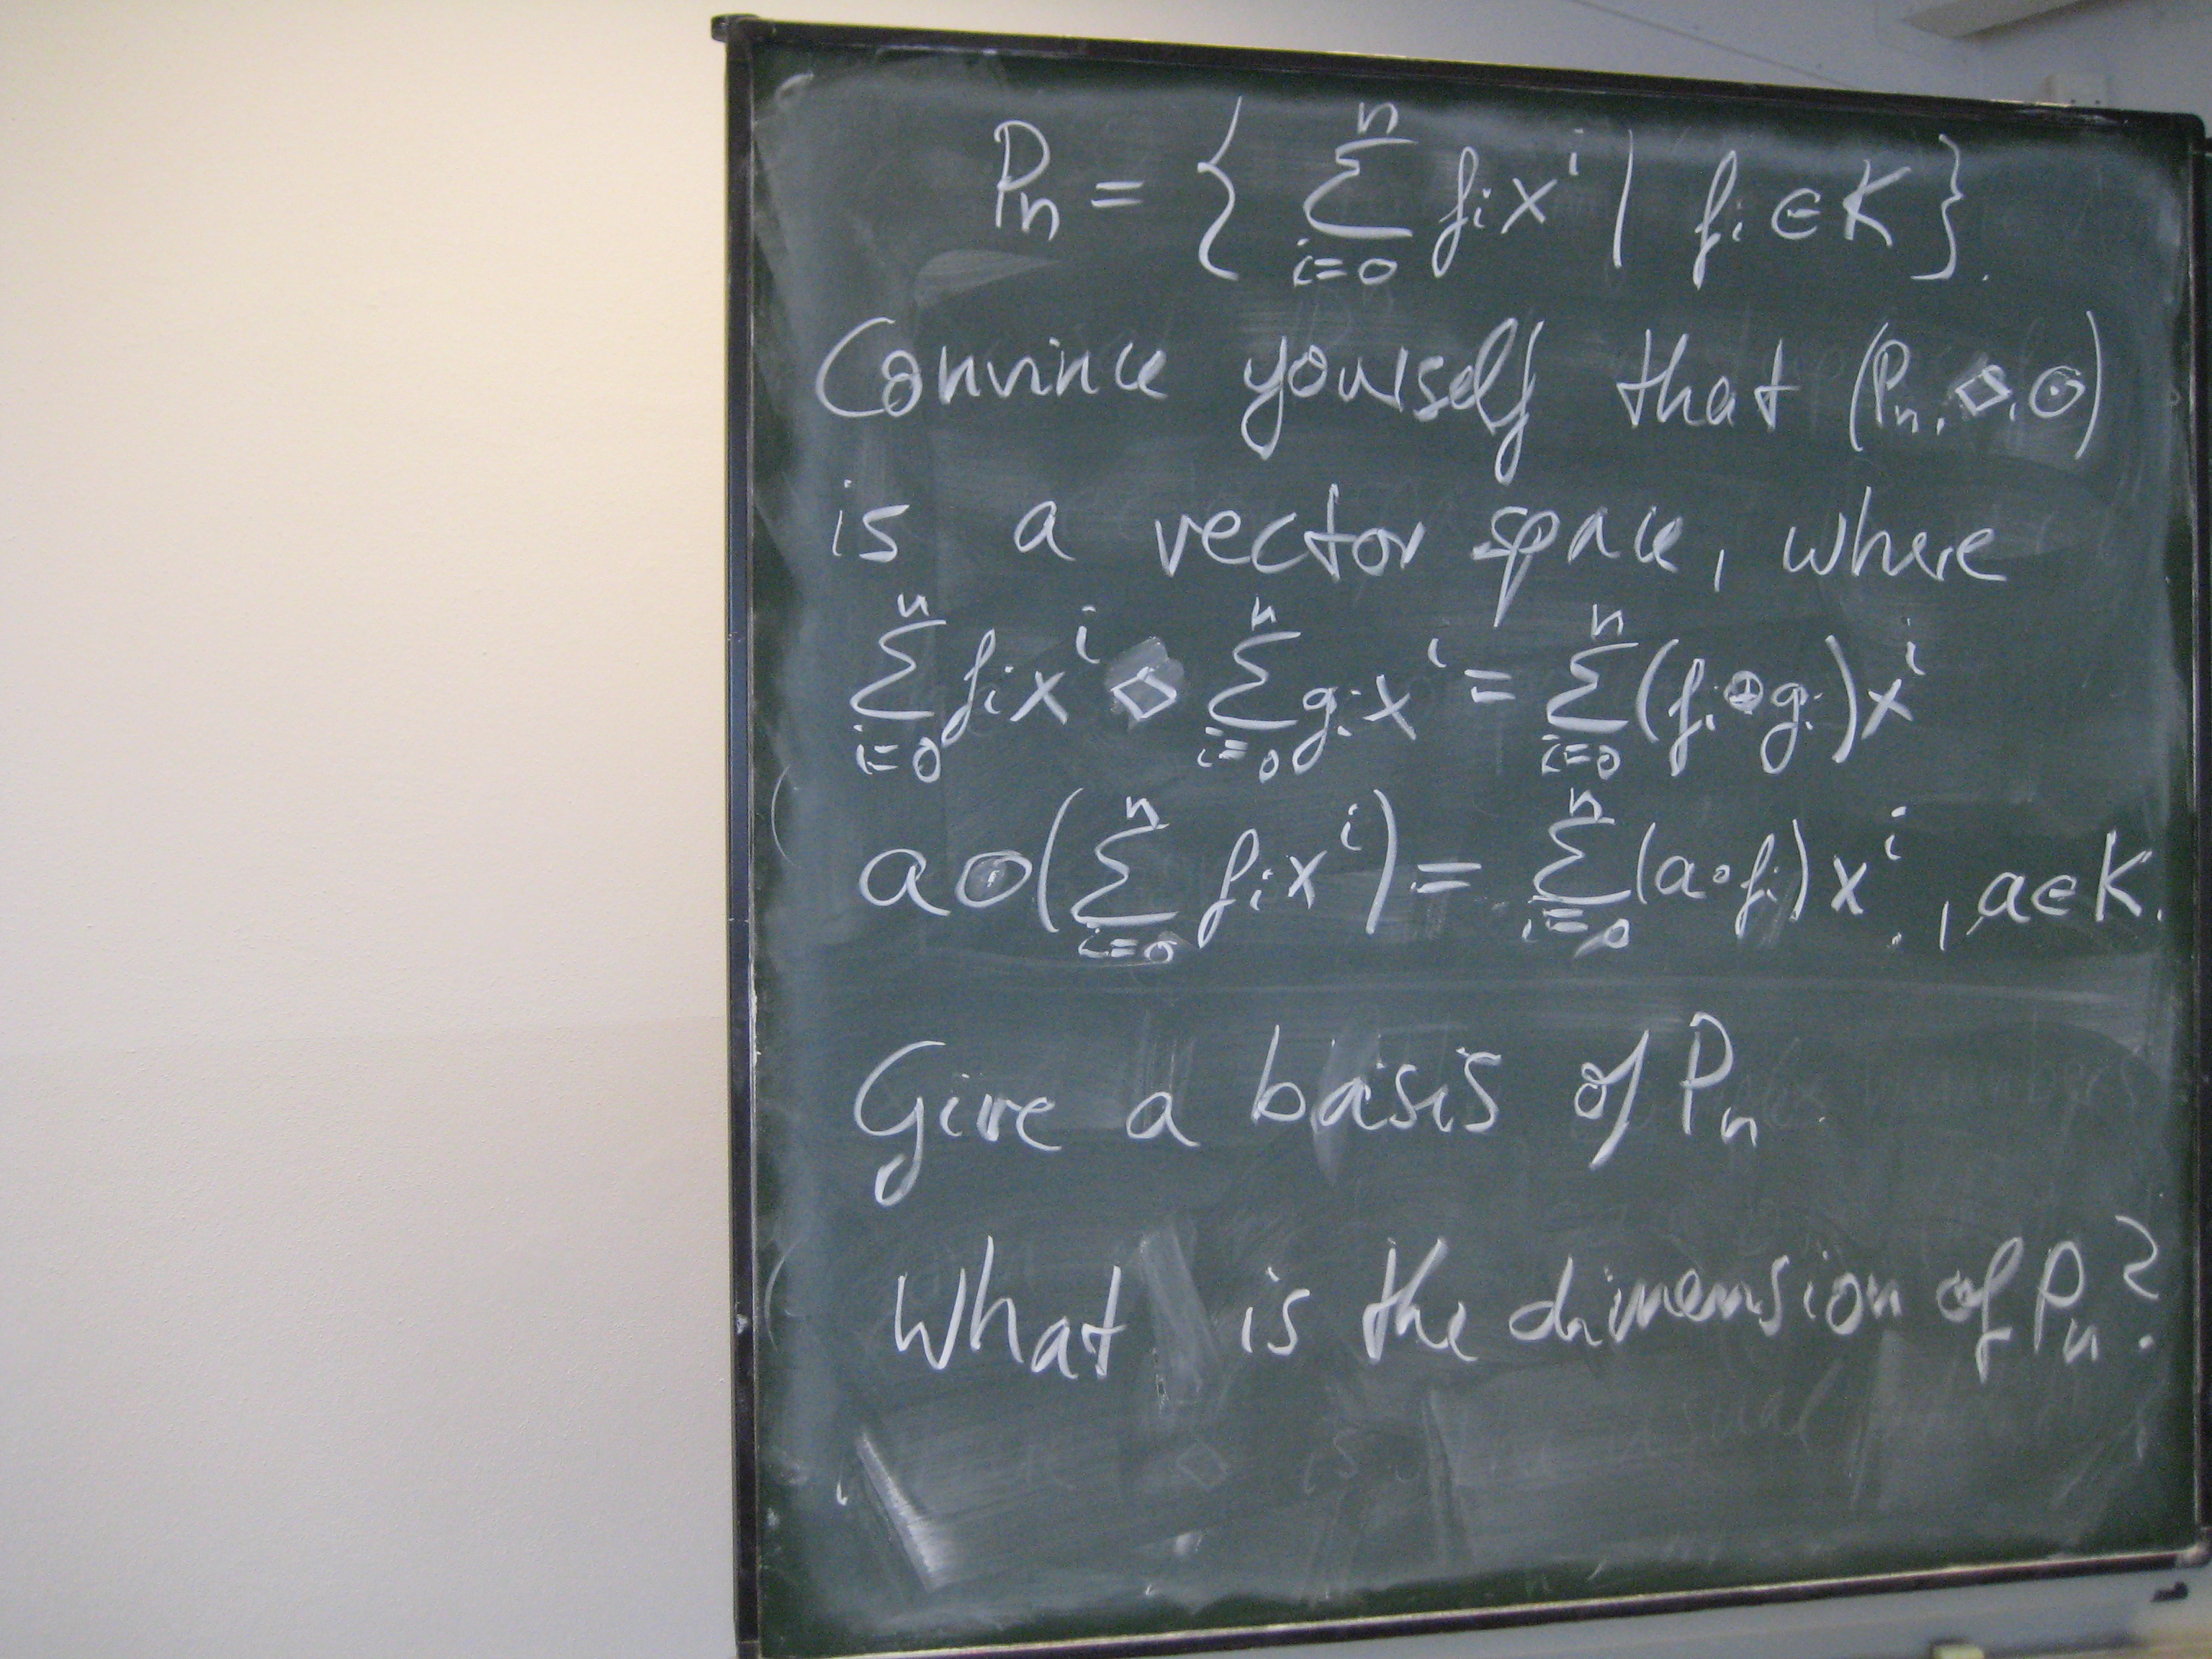 Pₙ = { ∑ᵢ₌₀ⁿ fᵢxⁱ | fᵢ ∈ K }.
Convince yourself that (Pₙ, ◇, ⊙)
is a vector space, where
∑ᵢ₌₀ⁿ fᵢxⁱ ◇ ∑ᵢ₌₀ⁿ gᵢxⁱ = ∑ᵢ₌₀ⁿ (fᵢ ⊕ gᵢ)xⁱ
a ⊙ (∑ᵢ₌₀ⁿ fᵢxⁱ) = ∑ᵢ₌₀ⁿ (a∘fᵢ)xⁱ, a∈K.
Give a basis of Pₙ
What is the dimension of Pₙ?